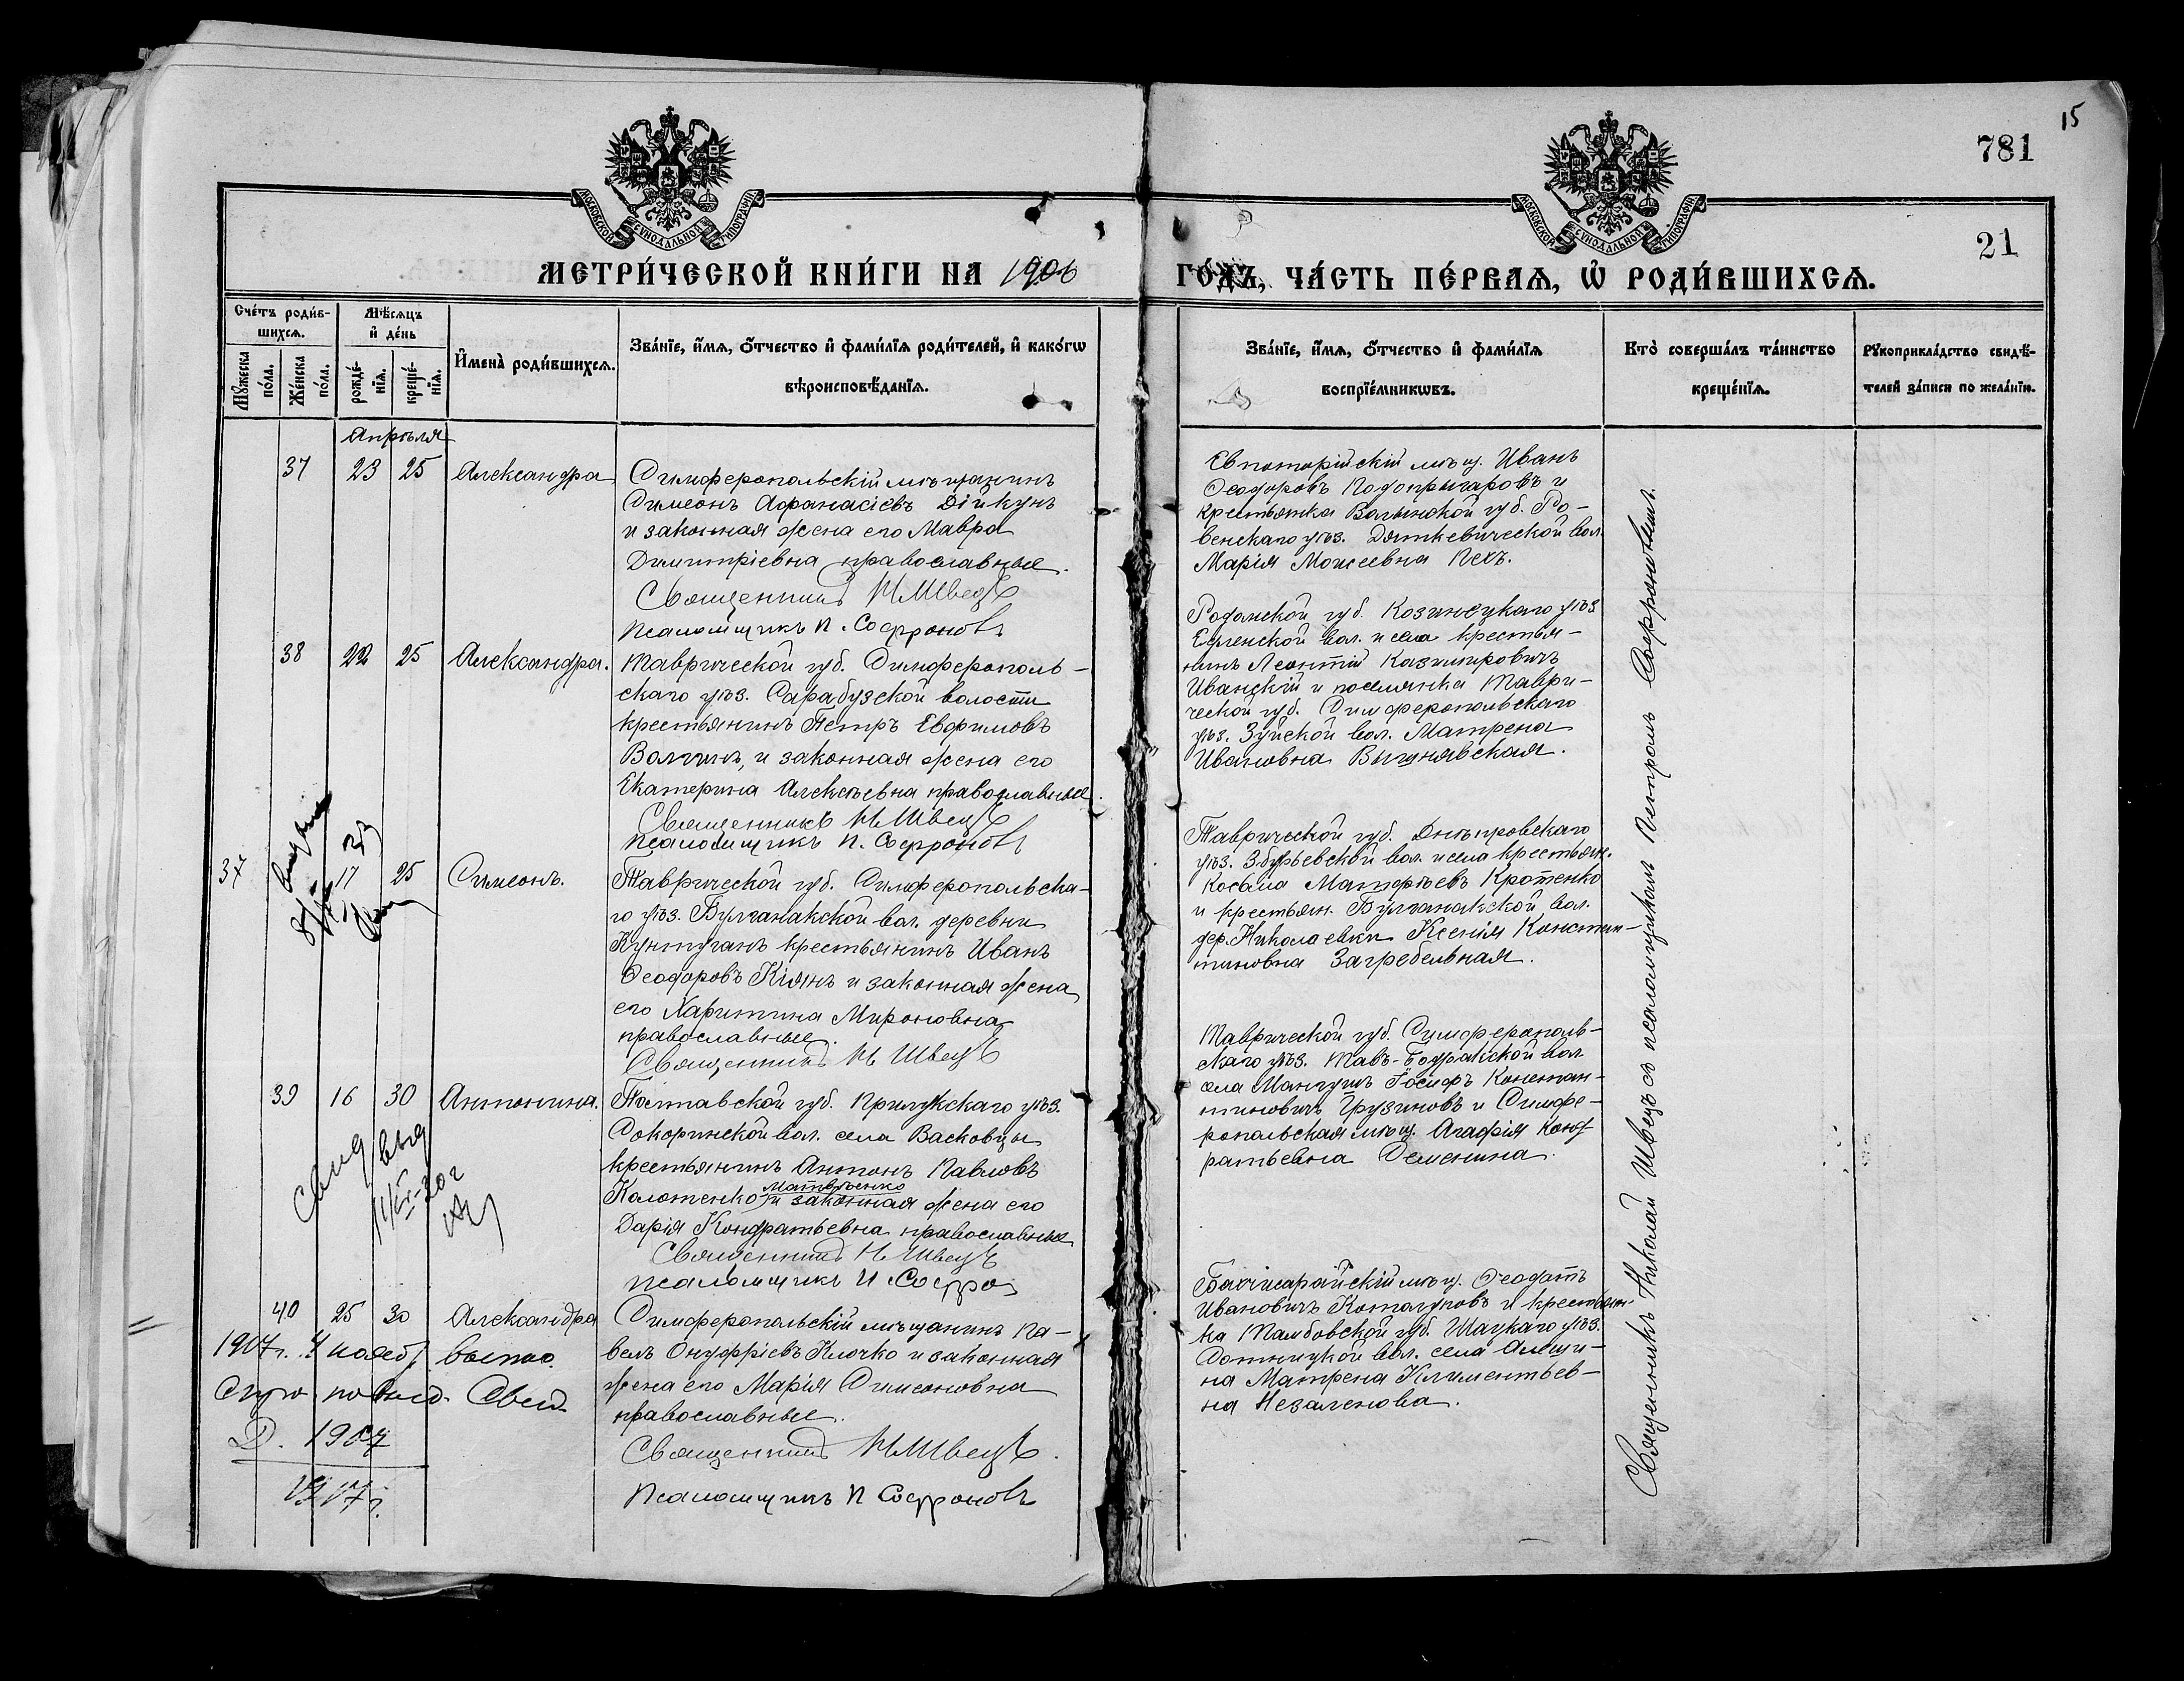 15
781
21
МОСКОВСКОЙ СѴНОДАЛЬНОЙ ТИПОГРАФІИ
МОСКОВСКОЙ СѴНОДАЛЬНОЙ ТИПОГРАФІИ
МЕТРИ́ЧЕСКОЙ КНИ́ГИ НА 1906 ГО́ДЪ, ЧА́СТЬ ПЕ́РВАѦ, Ѡ҆ РОДИ́ВШИХСѦ.
Сче́тъ роди́в-
шихсѧ.
Мꙋ́жеска по́ла.
Же́нска по́ла.
Мѣ́сѧцъ
и҆ де́нь
рожде́-
нїѧ.
креще́-
нїѧ.
И҆мена̀ роди́вшихсѧ.
Зва́нїе, и҆́мѧ, ѻ҆́тчество и҆ фами́лїѧ роди́телей, и҆ како́гѡ
вѣроисповѣ́данїѧ.
Зва́нїе, и҆́мѧ, ѻ҆́тчество и҆ фами́лїѧ
воспрїе́мникѡвъ.
Кто̀ соверша́лъ та́инство
креще́нїѧ.
Рꙋкоприкла́дство свидѣ́-
телей за́писи по жела́нїю.
Апрѣля
37 23 25 Александра
Симферопольскій мѣщанинъ
Симеонъ Афанасіевъ Дійкунъ
и законная жена его Мавра
Димитріевна православные.
Священникъ Н Швецъ
Псаломщикъ П. Софроновъ
Евпаторійскій мѣщ. Иванъ
Ѳеодоровъ Подопригаровъ и
крестьянка Волынской губ. Ро-
венскаго уѣз. Дяткевической вол.
Марія Моисеевна Пехъ.
38 22 25 Александра.
Таврической губ. Симферополь-
скаго уѣз. Сарабузской волости
крестьянинъ Петръ Евфимовъ
Волчинъ, и законная жена его
Екатерина Алексѣевна православные.
Священникъ Н. Швецъ
Псаломщикъ П. Софроновъ
Радомской губ. Козинецкаго уѣз
вол. и села крестья-
нинъ Леонтій Казимировичъ
Иванскій и поселянка Таври-
ческой губ. Симферопольскаго
уѣз. Зуйской вол. Матрена
Ивановна Вышнявская.
37 17 25 Симеонъ.
Таврической губ. Симферопольска-
го уѣз. Булганакской вол. деревни
Кунтуганъ крестьянинъ Иванъ
Ѳеодоровъ Кіянъ и законная жена
его Харитина Мироновна
православные.
Священникъ Н Швецъ
Таврической губ. Днѣпровскаго
уѣз. Збурьевской вол. и села крестьян.
Косьма Матфѣевъ Кротенко
и крестьян. Булганакской вол.
дер. Николаевки Ксенія Констан-
тиновна Загребельная.
39 16 30 Антонина.
Полтавской губ. Прилукскаго уѣз.
Сокоринской вол. села Васковцы
крестьянинъ Антонъ Павловъ
Матвѣенко
Колотенко и законная жена его
Дарія Кондратьевна православные
Священникъ Н Швецъ
Псаломщикъ П Софро
Свид выд
Таврической губ. Симферополь-
скаго уѣз. Тавъ-Бодракской вол.
села Мангушъ Іосифъ Констан-
тиновичъ Грузиновъ и Симфе-
ропольская мѣщ. Агафія Конд
ратьевна Деменина.
40 25 30 Александра
Симферопольскій мѣщанинъ Па-
велъ Онуфріевъ Клочко и законная
жена его Марія Симеоновна
православные.
Священникъ Н Швецъ.
Псаломщикъ П Софроновъ
1907 г. 4 нояб
Свид.
1907
Бахчисарайскій мѣщ. Ѳеодотъ
Ивановичъ Коталуповъ и крестьян-
ка Тамбовской губ. Шацкаго уѣз.
Сотницкой вол. села Алеши-
на Матрена Климентьев-
на Незаленова.
Священникъ Николай Швецъ съ псаломщикомъ Петромъ Софроновымъ.